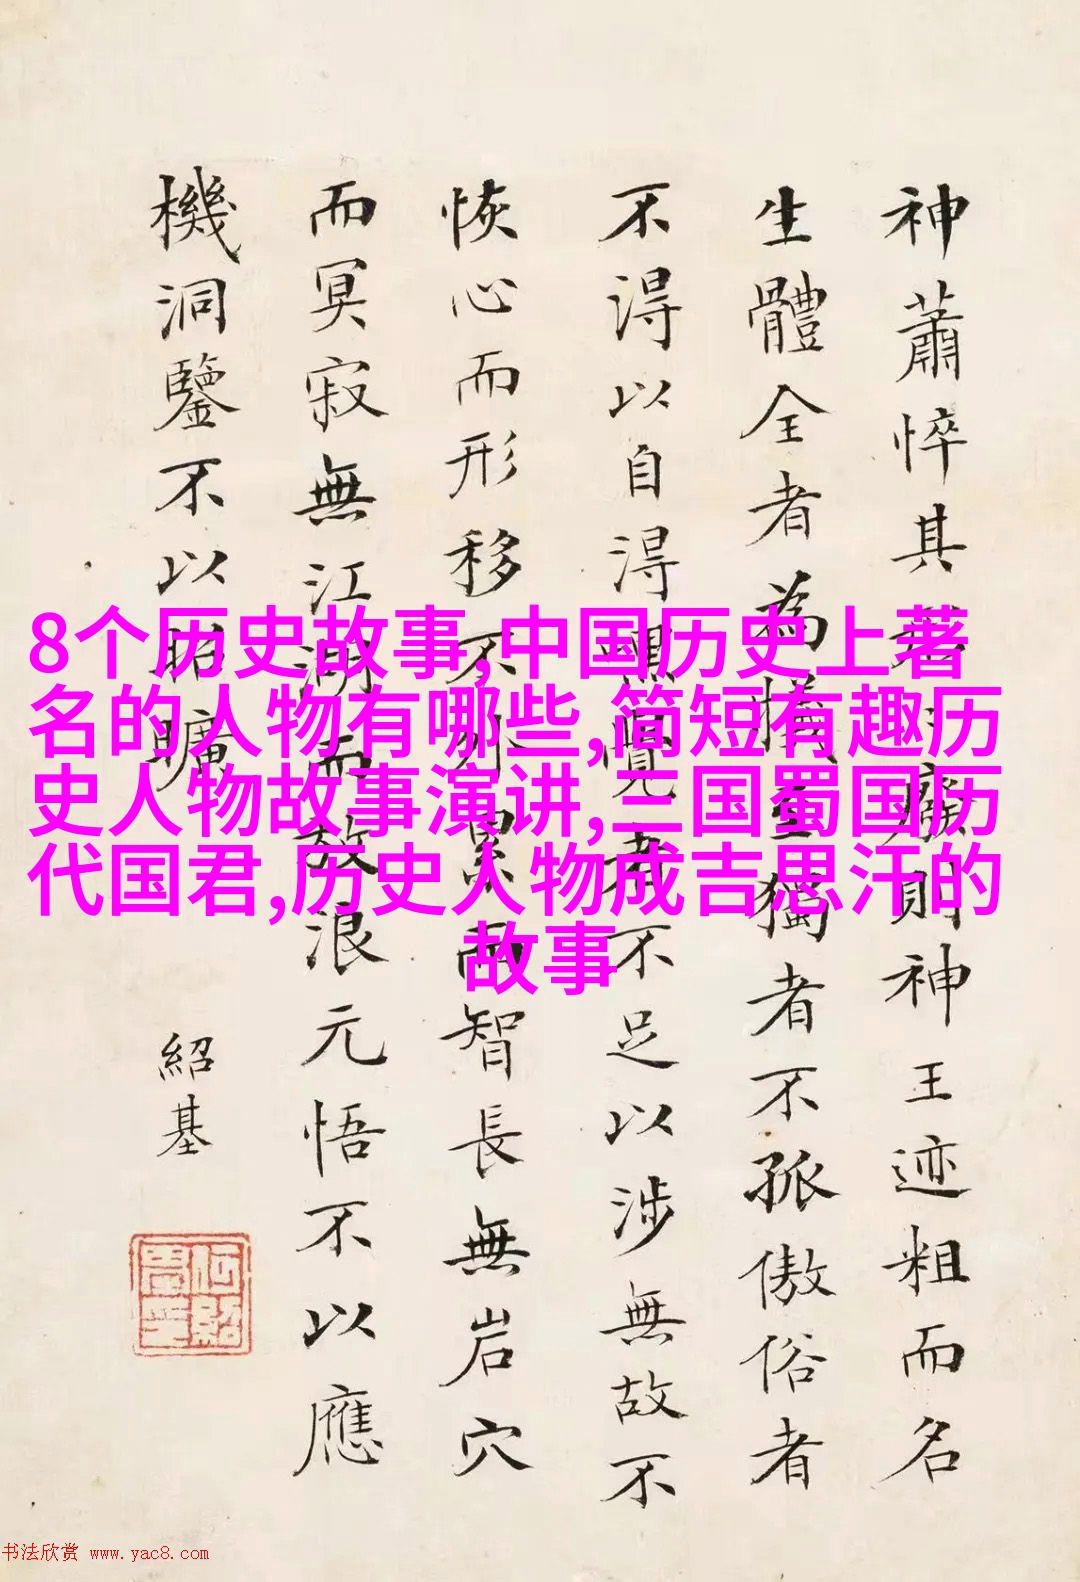 8个历史故事,中国历史上著
名的人物有哪些,简短有趣历
史人物故事演讲,三国蜀国历
代国君,历史人物成吉思汗的
故事
神蕭悴其癈則神王迹粗而名
生體全者為犧至獨者不孤傲俗者
不得以自得嘿覺者不足以涉無故不
恢心而形移不外累而智長無岩穴
而冥寂無江湖而放浪元悟不以應
機洞鑒不以昭曠
紹基
书法欣赏 www.yac8.com